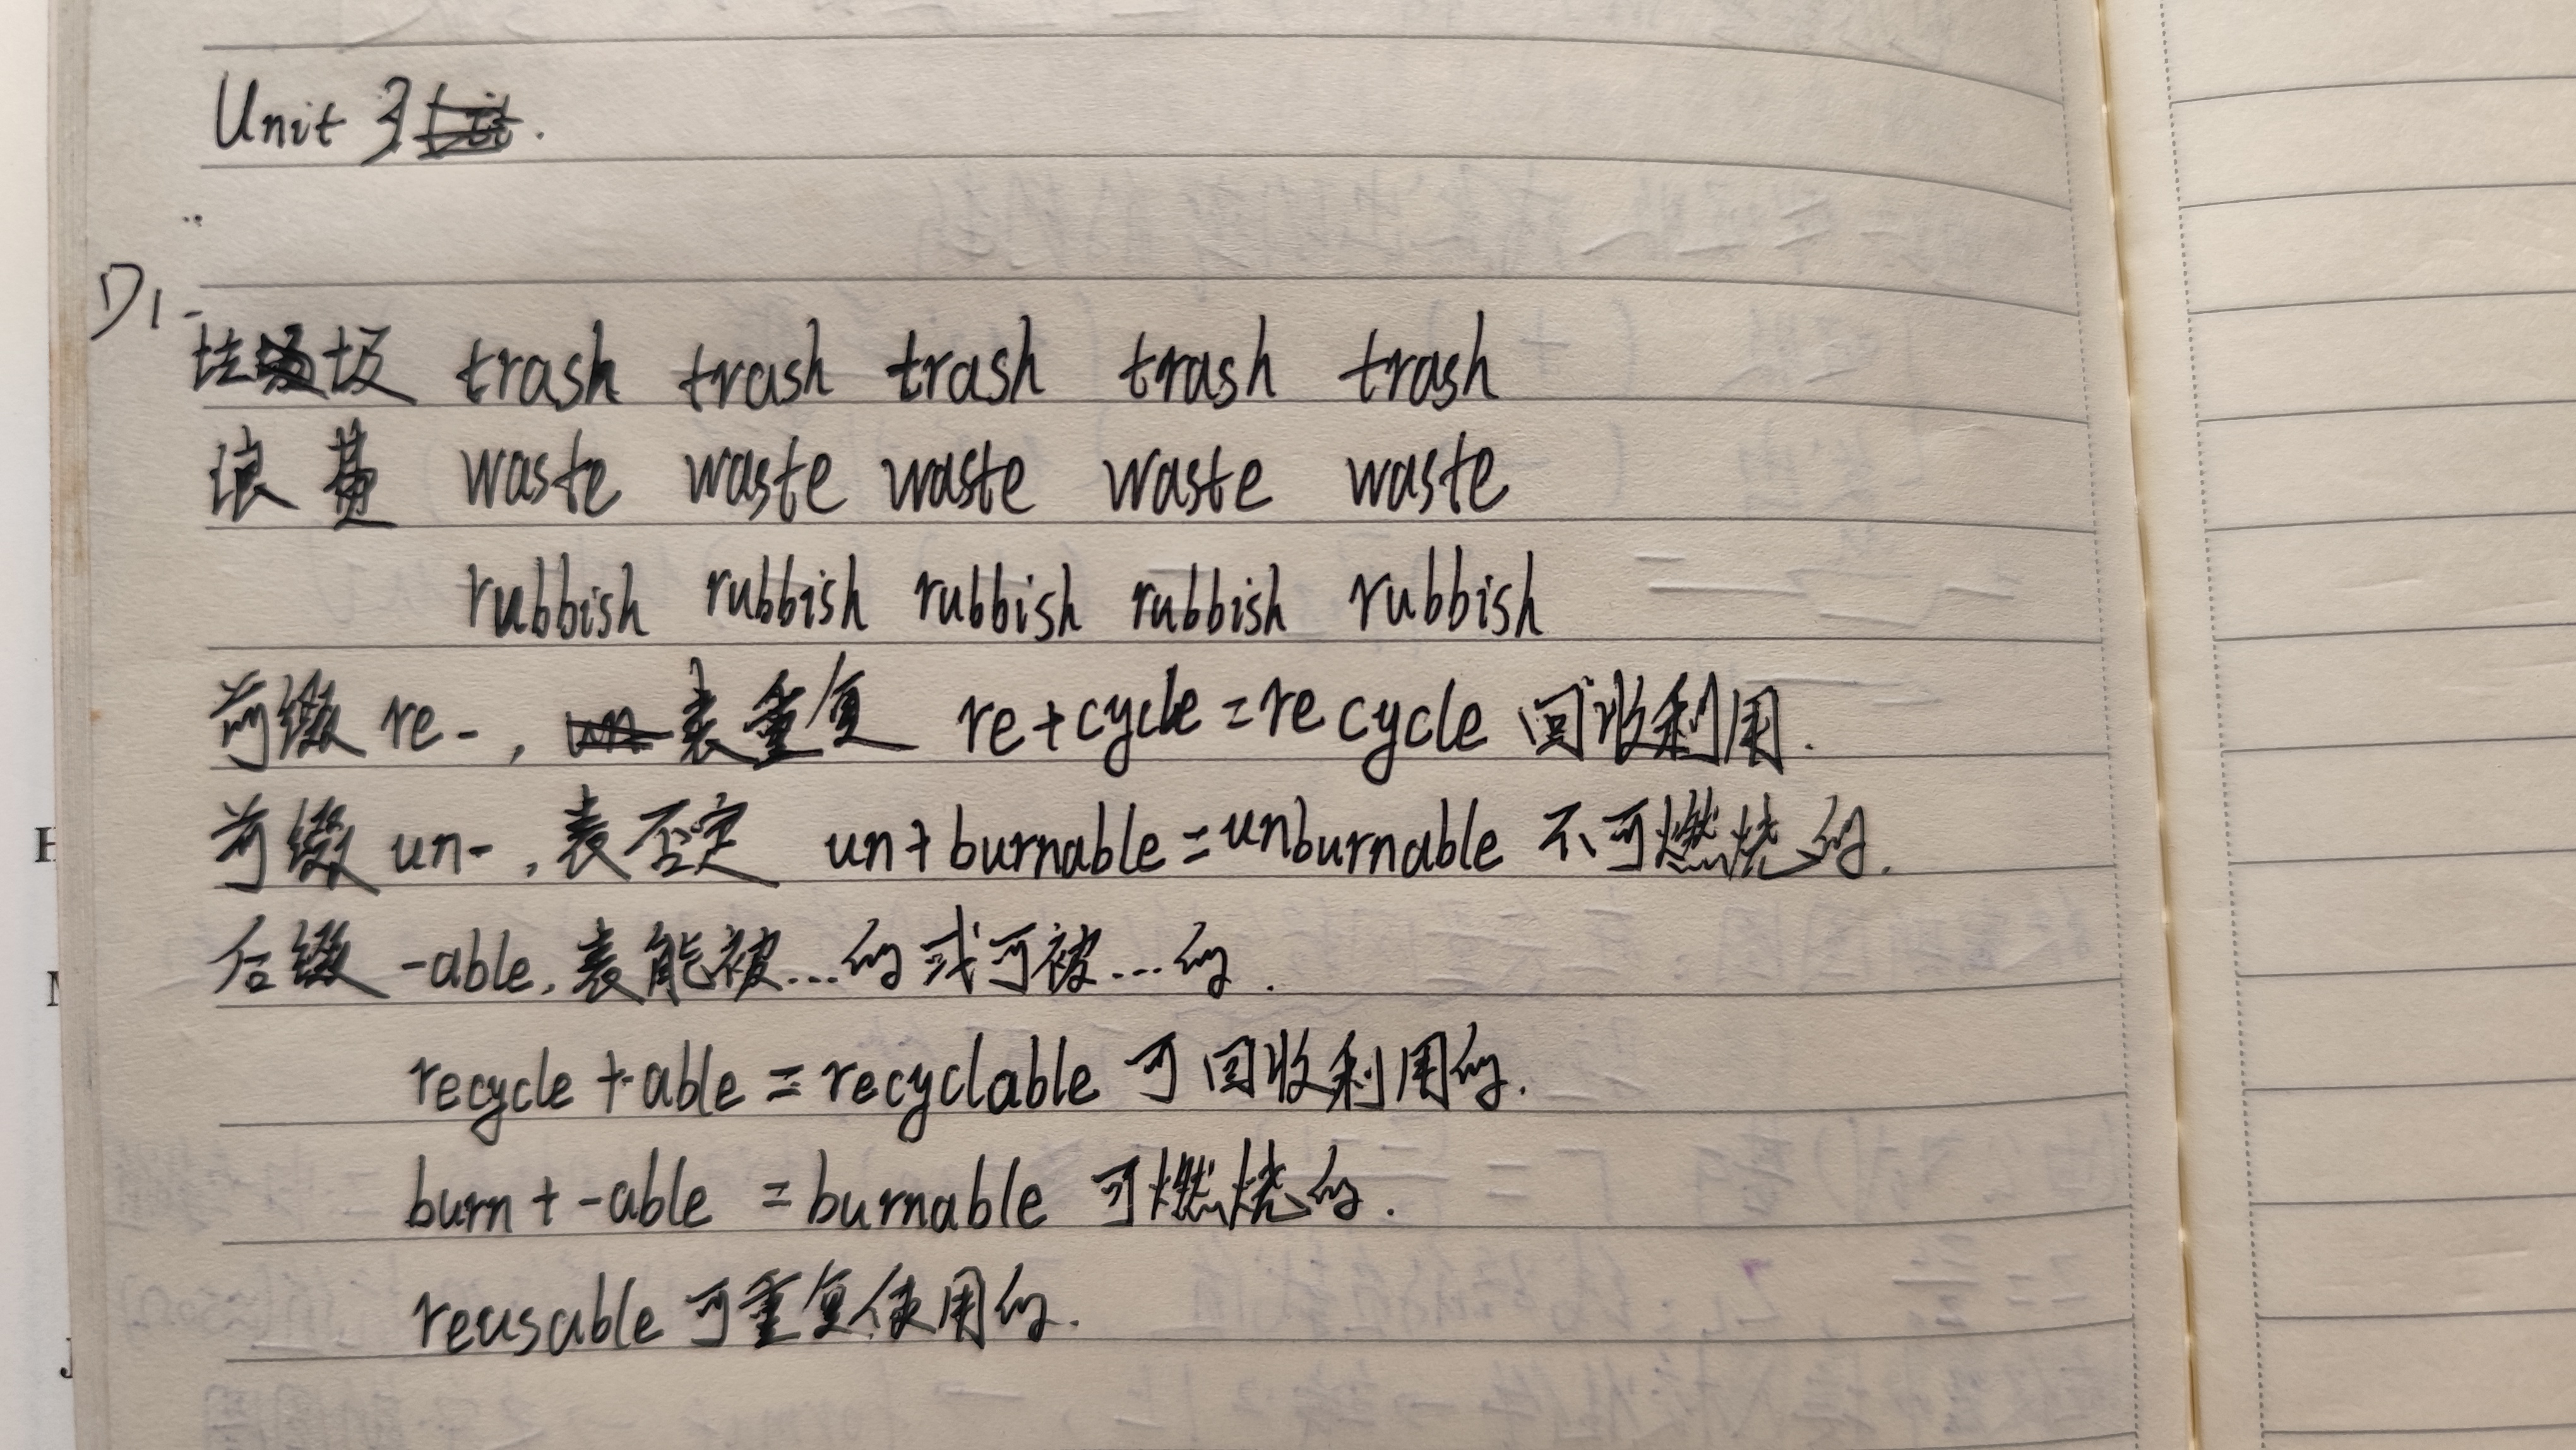 Unit 3.
D1-
垃圾 trash trash trash trash trash
浪费 waste waste waste waste waste
rubbish rubbish rubbish rubbish rubbish
前缀 re-, 表重复 re+cycle=recycle 回收利用.
前缀 un-, 表否定 un+burnable=unburnable 不可燃烧的.
后缀 -able, 表能被...的或可被...的.
recycle+able=recyclable 可回收利用的.
burn+-able =burnable 可燃烧的.
reusable 可重复使用的.